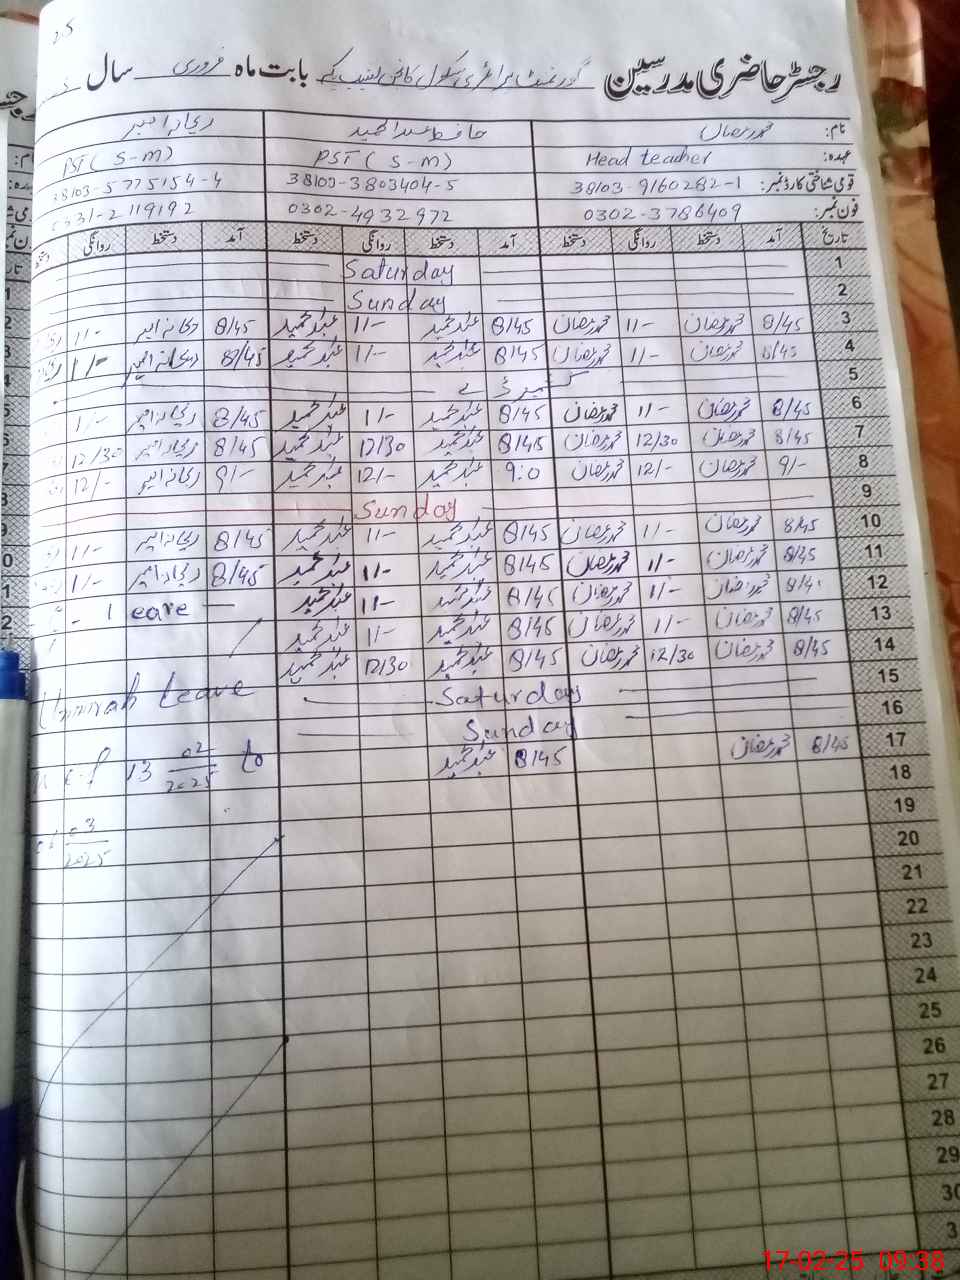 رجسٹر حاضری مدرسین گورنمنٹ پرائمری سکول بابت ماہ فروری سال
نام: محمد رمضان حافظ عبدالحمید
عہدہ: Head teacher PST (S-m) PST (S-m)
قومی شناختی کارڈ نمبر: 38103-9160282-1 38103-3803404-5 38103-5775154-4
فون نمبر: 0302-3786409 0302-4932972 0331-2119192
تاریخ آمد دستخط روانگی دستخط آمد دستخط روانگی دستخط آمد دستخط روانگی دستخط
1 Saturday
2 Sunday
3 8/45 محمد رمضان 11/- محمد رمضان 8/45 عبدالحمید 11/- عبدالحمید 8/45 11/-
4 8/45 محمد رمضان 11/- محمد رمضان 8/45 عبدالحمید 11/- عبدالحمید 8/45 11/-
5 کشمیر ڈے
6 8/45 محمد رمضان 11/- محمد رمضان 8/45 عبدالحمید 11/- عبدالحمید 8/45 11/-
7 8/45 محمد رمضان 12/30 محمد رمضان 8/45 عبدالحمید 12/30 عبدالحمید 8/45 12/30
8 9/- محمد رمضان 12/- محمد رمضان 9:0 عبدالحمید 12/- عبدالحمید 9/- 12/-
9 Sunday
10 8/45 محمد رمضان 11/- محمد رمضان 8/45 عبدالحمید 11/- عبدالحمید 8/45 11/-
11 8/45 محمد رمضان 11/- محمد رمضان 8/45 عبدالحمید 11/- عبدالحمید 8/45 11/-
12 محمد رمضان 11/- محمد رمضان 8/45 عبدالحمید 11/- عبدالحمید leave
13 8/45 محمد رمضان 11/- محمد رمضان 8/45 عبدالحمید 11/- عبدالحمید
14 8/45 محمد رمضان 12/30 محمد رمضان 8/45 عبدالحمید 12/30 عبدالحمید
15 Saturday Ummrah Leave
16 Sunday
17 8/45 محمد رمضان 8/45 عبدالحمید w.e.f 13 02/2025 to
18
19
03/2025
20
21
22
23
24
25
26
27
28
29
30
17-02-25 09:38